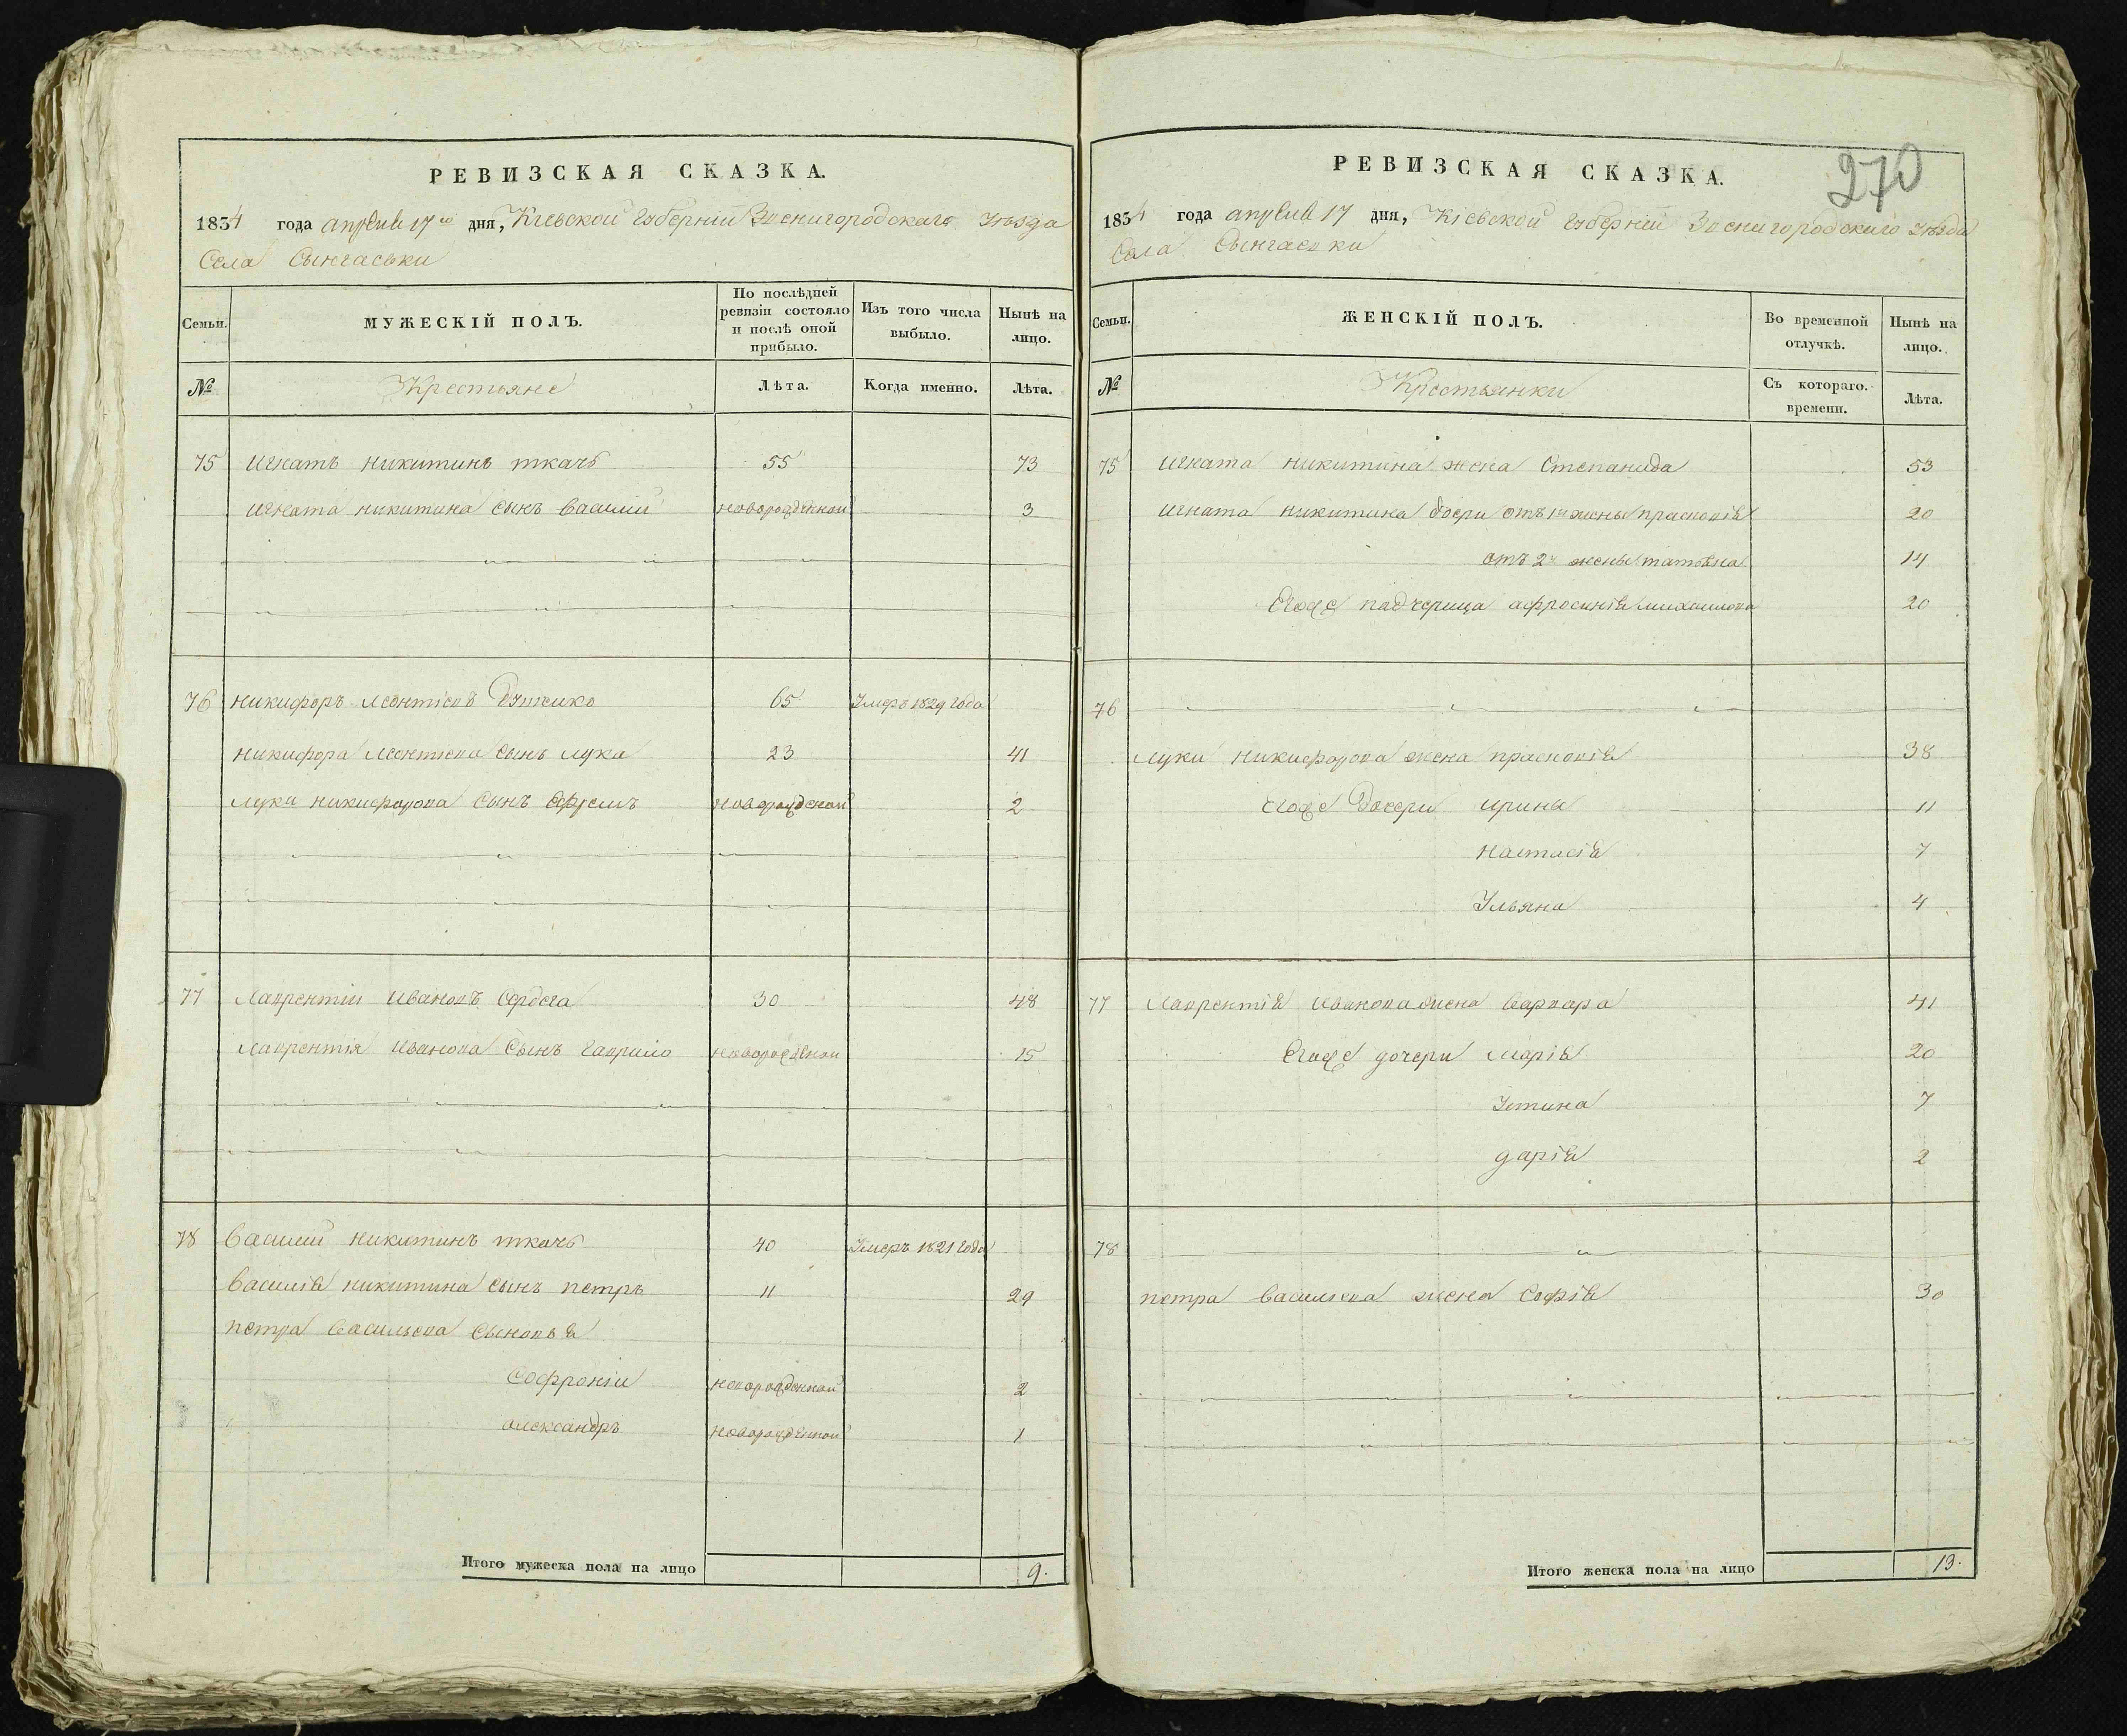 РЕВИЗСКАЯ СКАЗКА.
1834 года апреля 17го дня, Кіевской Губерніи Звенигородскаго уѣзда
Села
Семьи. МУЖЕСКІЙ ПОЛЪ. По послѣдней ревизіи состояло и послѣ оной прибыло. Изъ того числа выбыло. Нынѣ на лицо.
№ Крестьяне Лѣта. Когда именно. Лѣта.
75 Игнатъ никитинъ ткачъ 55 73
Игната никитина сынъ василий новорожденной 3
76 никифоръ леонтіевъ 65 умеръ 1829 года
никифора леонтіева сынъ лука 23 41
луки никифорова сынъ ефремъ новорожденой 2
77 лаврентій ивановъ Сердега 30 48
лаврентія иванова сынъ гаврило новорожденой 15
78 василий никитинъ ткачъ 40 умеръ 1821 года
василія никитина сынъ петръ 11 29
петра васильева сыновья
Софроній новорожденной 2
александръ новорожденной 1
Итого мужеска пола на лицо 9.
РЕВИЗСКАЯ СКАЗКА.
270
1834 года апреля 17 дня, Кіевской Губерніи Звенигородскаго уѣзда
Села
Семьи. ЖЕНСКІЙ ПОЛЪ. Во временной отлучкѣ. Нынѣ на лицо.
№ Крестьянки Съ котораго. времени. Лѣта.
75 Игната никитина жена Степанида 53
Игната никитина дочери отъ 1й жены прасковія 20
отъ 2й жены татьяна 14
Егоже падчерица афросинія михайлова 20
76
луки никифорова жена прасковія 38
егоже дочери ирина 11
настасія 7
Ульяна 4
77 лаврентія Иванова жена варвара 41
Егоже дочери марія 20
Устина 7
дарія 2
78
петра васильева жена софія 30
Итого женска пола на лицо 13.